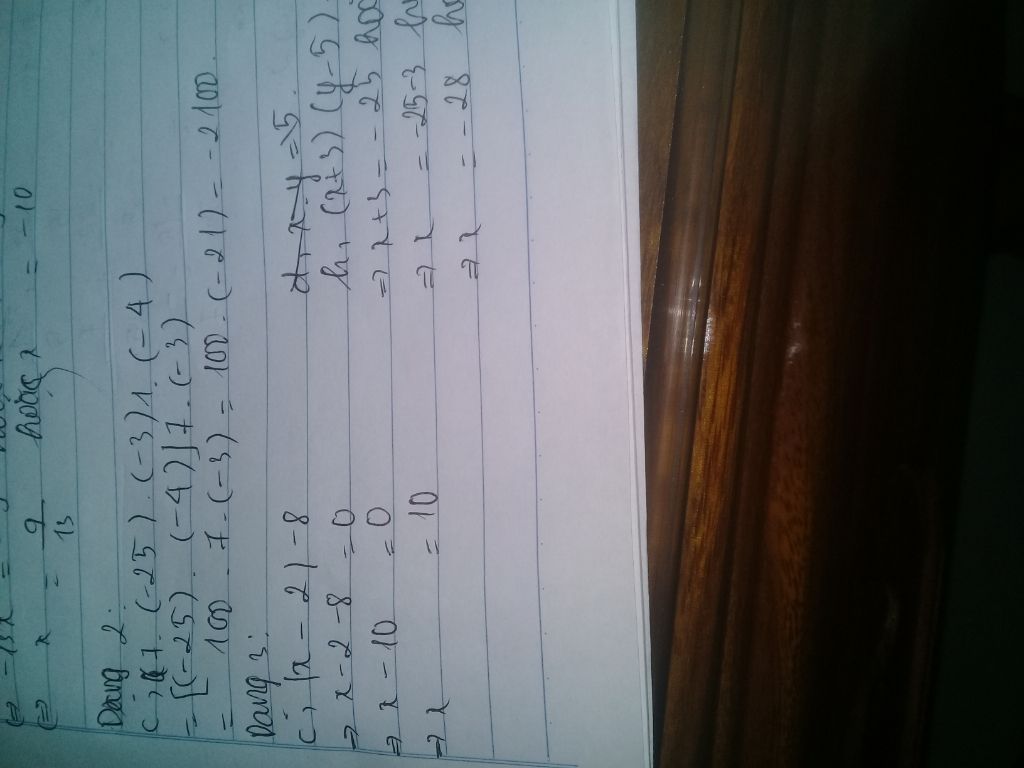 (=) -13x =
(=) x = 9/13 hoặc x = -10
Dạng 2:
c, 7. (-25). (-3). (-4)
= [(-25). (-4)] 7. (-3)
= 100. 7. (-3) = 100. (-21) = -2100.
Dạng 3:
c, |x - 2| - 8
=> x - 2 - 8 = 0
=> x - 10 = 0
=> x = 10
d, x - y = 5.
h, (x+3) (y-5)
=> x+3 = -25 hoặ
=> x = -25-3
=> x = -28